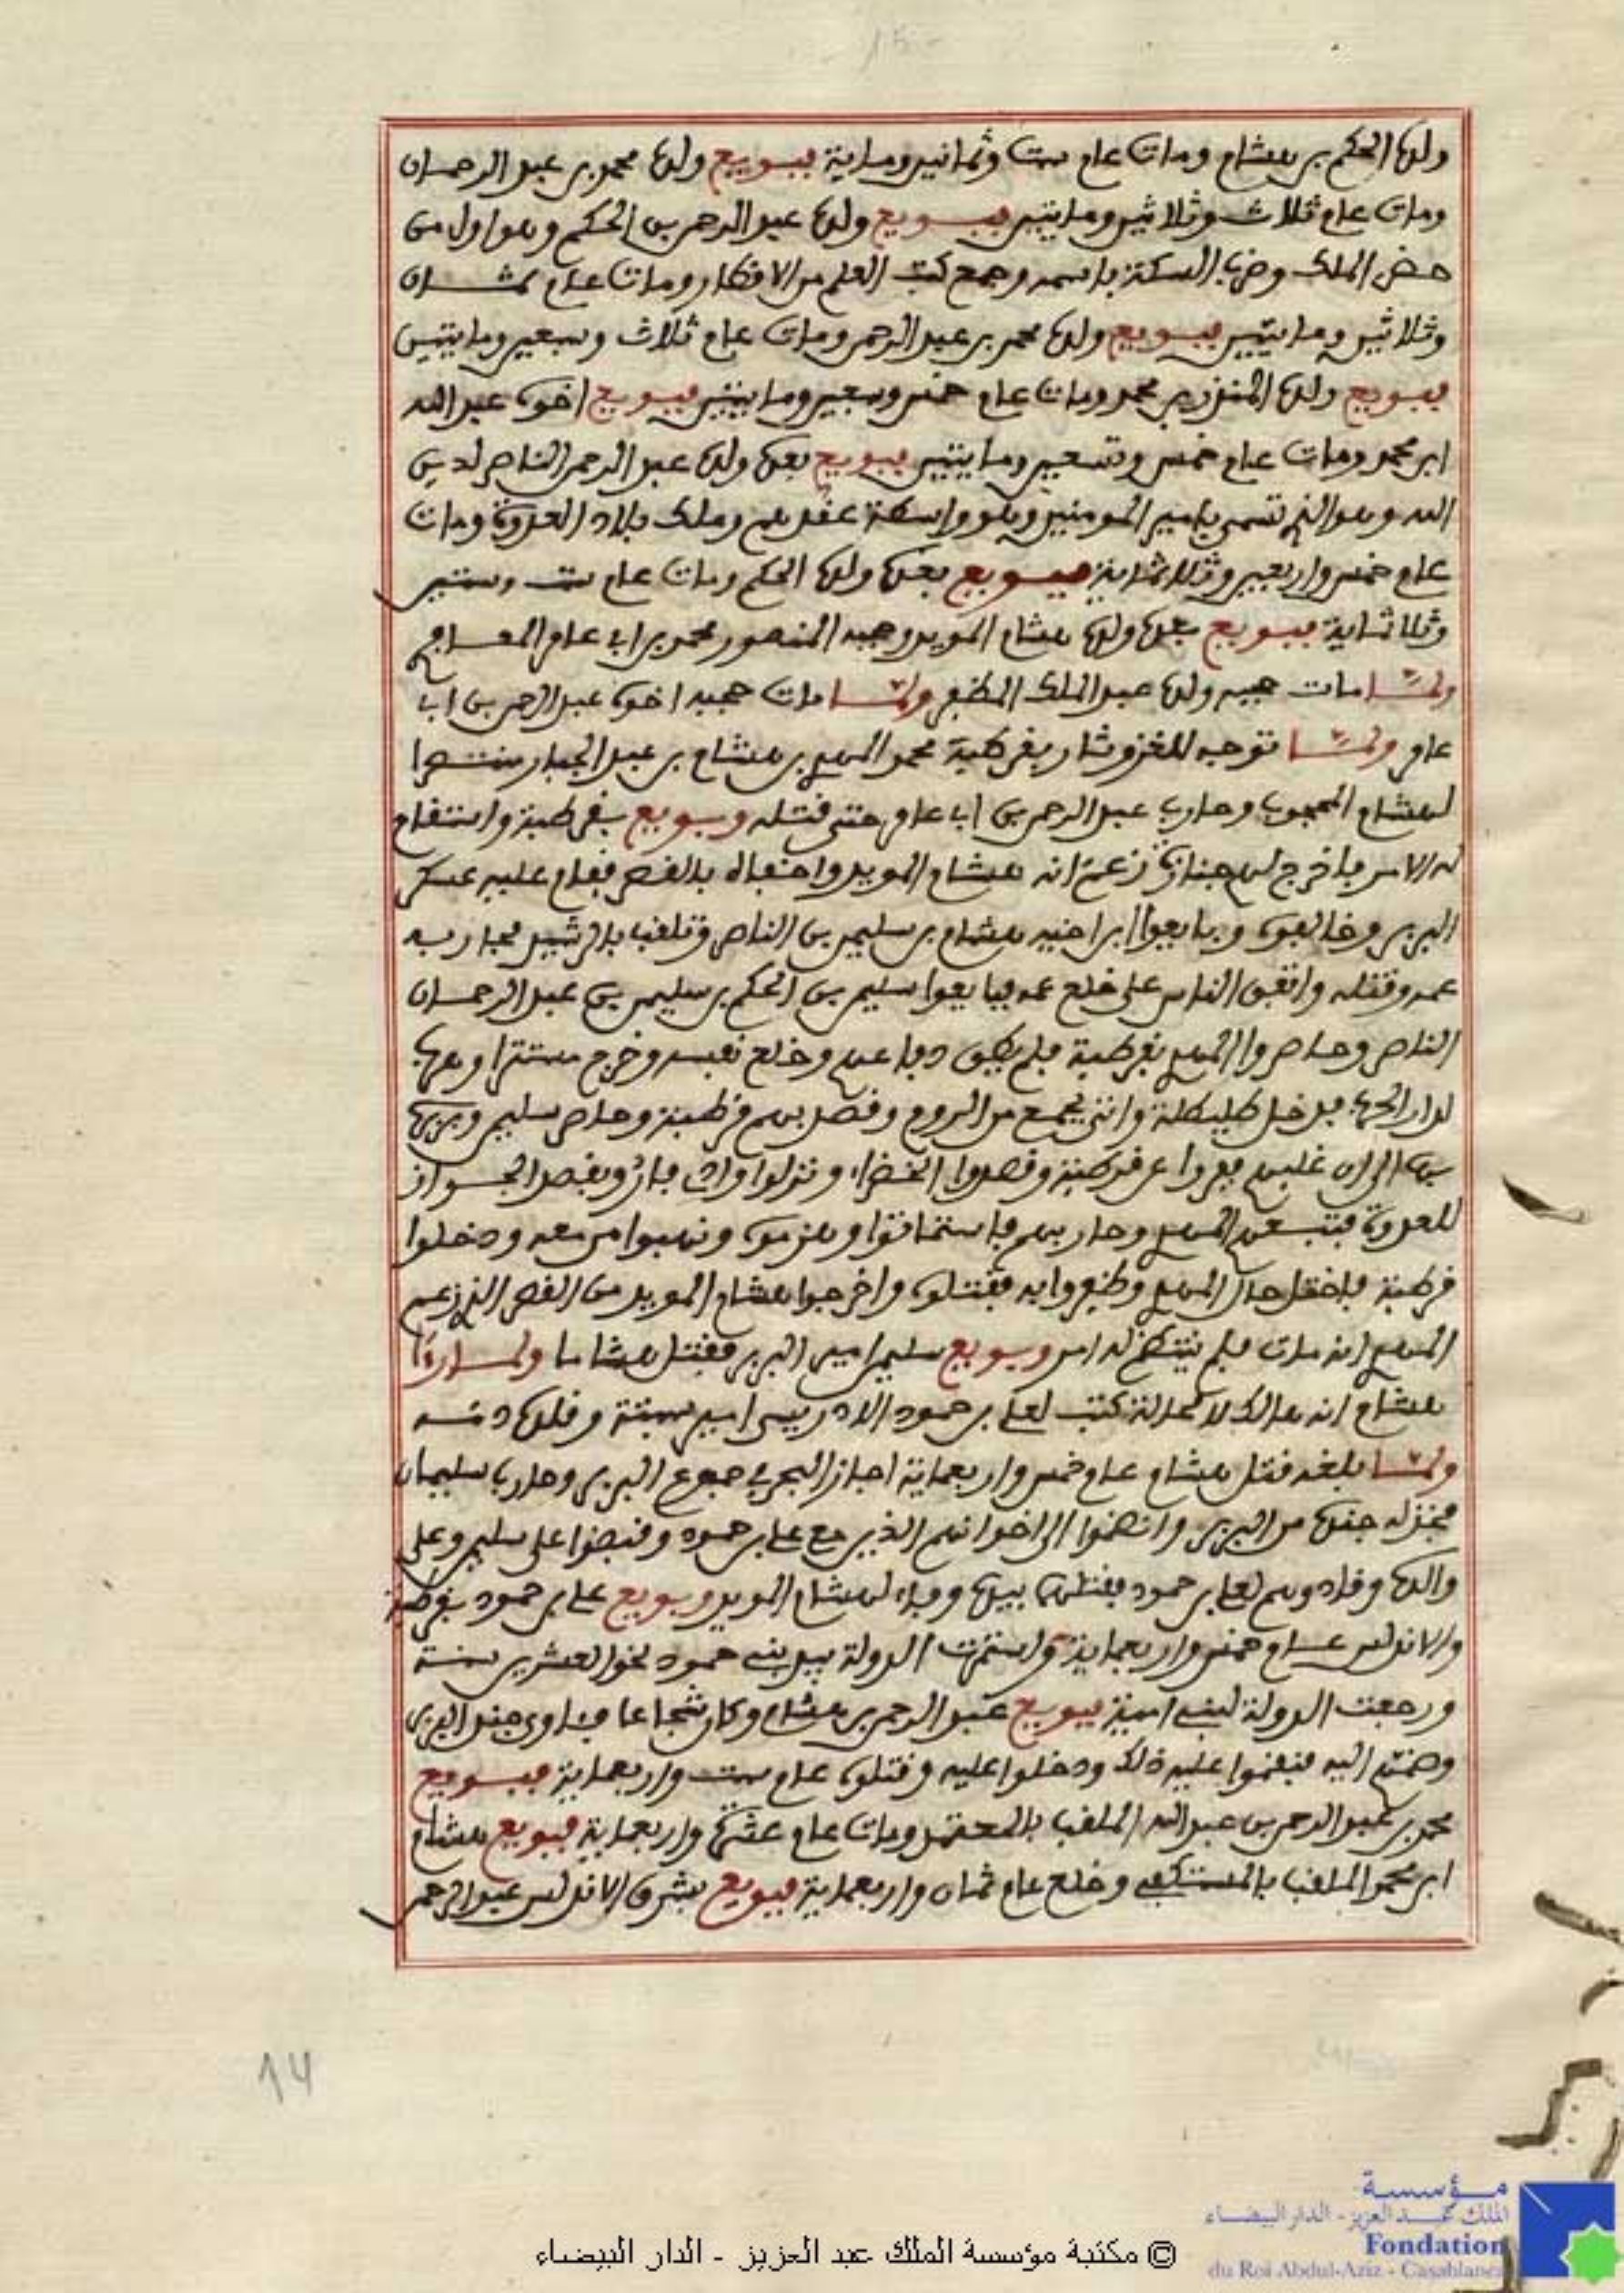 ولده الحكم بن هشام ومات عام ست وثمانين ومائة فبويع ولده محمد بن عبد الرحمان
ومات عام ثلاث وثلاثين ومايتين فبويع ولده عبد الرحمن بن الحكم وهو اول من
ضخم الملك وضرب السكة باسمه وجمع كتب العلم من الاقطار ومات عام ثمان
وثلاثين ومايتين فبويع ولده محمد بن عبد الرحمن ومات عام ثلاث وسبعين ومايتين
فبويع ولده المنذر بن محمد ومات عام خمس وسبعين ومايتين فبويع اخوه عبد الله
ابن محمد ومات عام خمس وتسعين ومايتين فبويع بعده ولده عبد الرحمن الناصر لدين
الله وهو الذي تسمى بامير المومنين وهو واسطة عقدهم وملك بلاد العدوة ومات
عام خمس واربعين وثلاثماية فبويع بعده ولده الحكم ومات عام ست وستين
وثلاثماية فبويع بعده ولده هشام المويد وحجبه المنصور محمد بن ابي عامر المعافري
ولما مات حجبه ولده عبد الملك المظفر ولما مات حجبه اخوه عبد الرحمن بن ابي
عامر ولما توجه للغزو ثار بقرطبة محمد المهدي بن هشام بن عبد الجبار منتصرا
لهشام المحجوب وحارب عبد الرحمن بن ابي عامر حتى قتله وبويع بقرطبة واستقام
له الامر فاخرج لهم جنازة زعم انه هشام المويد واخفاه بالقصر فقام عليه عسكر
البربر وخالفوه وبايعوا ابن اخيه هشام بن سليمن بن الناصر وتلقب بالرشيد فحاربه
عمه وقتله واتفق الناس على خلع عمه فبايعوا سليمن بن الحكم بن سليمن بن عبد الرحمان
الناصر وحاصروا المهدي بقرطبة فلم يطق دفاعهم وخلع نفسه وخرج مستترا وهرب
لدار الحرب فدخل طليطلة واتى بجمع من الروم وقصد بهم قرطبة وحاصر سليمن وبربره
بها الى ان غلبهم ففروا عن قرطبة وقصدوا الخضراء ونزلوا وادي يارو بقصد الجواز
للعدوة فتبعهم المهدي وحاربهم فاستماتوا وهزموه ونهبوا من معه ودخلوا
قرطبة فاختل حال المهدي وظفروا به فقتلوه واخرجوا هشام المويد من القصر الذي زعم
المهدي انه مات فلم ينتظم له امر وبويع سليمن امير البربر فقتل هشاما ولما راى
هشام انه هالك لا محالة كتب لعلي بن حمود الادريسي امير سبتة وقلده دمه
ولما بلغه قتل هشام عام خمس واربعماية اجاز البحر في جموع البربر وحارب سليمان
فخذله جنده من البربر وانضموا الى اخوانهم الذين مع علي بن حمود وقبضوا على سليمن وعلى
والده وقادوهم لعلي بن حمود فقتلهما بيده وفاء لهشام المويد وبويع علي بن حمود بقرطبة
والاندلس عام خمس واربعماية واستمرت الدولة بيد بني حمود نحو العشرين سنة
ورجعت الدولة لبني امية فبويع عبد الرحمن بن هشام وكان شجاعا فداوى جند البربر
وضمهم اليه فنقموا عليه ذلك ودخلوا عليه وقتلوه عام ست واربعماية فبويع
محمد بن عبد الرحمن بن عبد الله الملقب بالمعتمد ومات عام عشرة واربعماية فبويع هشام
ابن محمد الملقب بالمستكفي وخلع عام ثمان واربعماية فبويع بشرق الاندلس عبد الرحمن
14
مؤسسة
الملك عبد العزيز - الدار البيضاء
Fondation
du Roi Abdul-Aziz - Casablanca
© مكتبة مؤسسة الملك عبد العزيز - الدار البيضاء